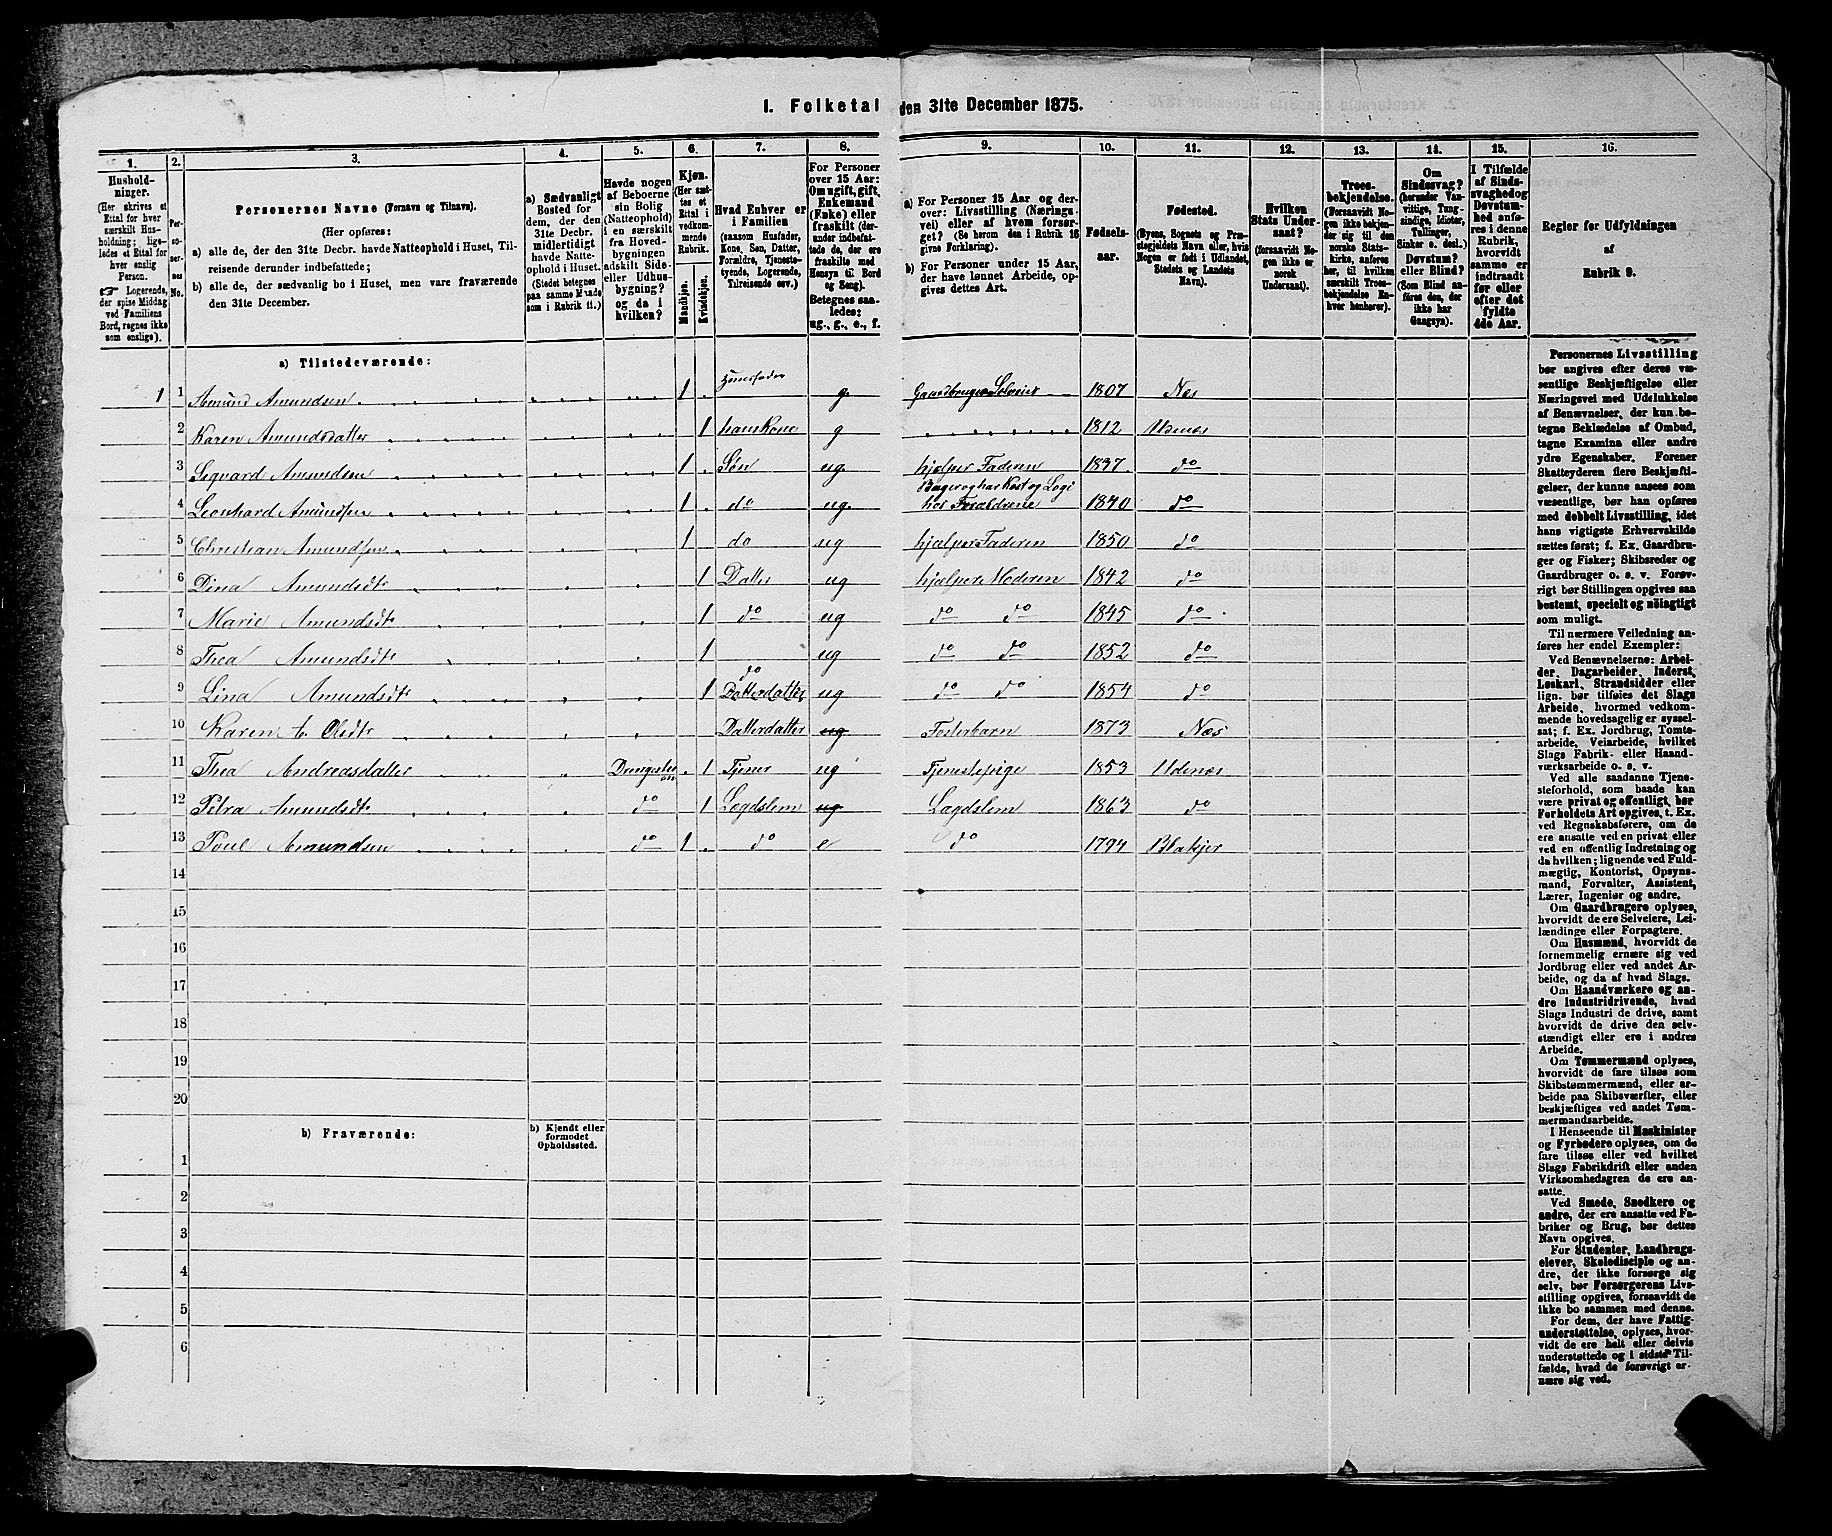 1. Folketal den 31te December 1875.
1. 2. 3. 4. 5. 6. 7. 8. 9. 10. 11. 12. 13. 14. 15. 16.
Hushold-
ninger.
(Her skrives et
Ettal for hver
særskilt Hus-
holdning; lige-
ledes et Ettal for
hver enslig
Person.
☞ Logerende,
der spise Middag
ved Familiens
Bord, regnes ikke
som enslige).
Per-
so-
ner-
nes
No.
Personernes Navne (Fornavn og Tilnavn).
(Her opføres:
a) alle de, der den 31te Decbr. havde Natteophold i Huset, Til-
reisende derunder indbefattede;
b) alle de, der sædvanlig bo i Huset, men vare fraværende
den 31te December.
a) Sædvanligt
Bosted for
dem, der den
31te Decbr.
midlertidigt
havde Natte-
ophold i Huset.
(Stedet betegnes
paa samme Maade
som i Rubrik 11.)
Havde nogen
af Beboerne
sin Bolig
(Natteophold)
i en særskilt
fra Hoved-
bygningen
adskilt Side-
eller Udhus-
bygning?
og da i
hvilken?
Kjøn.
(Her sæt-
tes et
Ettal i
vedkom-
mende
Rubrik.
Mandkjøn.
Kvindekjøn.
Hvad Enhver er
i Familien
(saasom Husfader,
Kone, Søn, Datter,
Forældre, Tjeneste-
tyende, Logerende,
Tilreisende osv.)
For Personer
over 15 Aar:
Om ugift, gift,
Enkemand
(Enke) eller
fraskilt (der-
under indbefat-
tede de, der ere
fraskilte med
Hensyn til Bord
og Seng).
Betegnes saa-
ledes:
ug., g., e., f.
a) For Personer 15 Aar og der-
over: Livsstilling (Nærings-
vei) eller af hvem forsør-
get? (Se herom den i Rubrik 16
givne Forklaring).
b) For Personer under 15 Aar,
der have lønnet Arbeide, op-
gives dettes Art.
Fødsels-
aar.
Fødested.
(Byens, Sognets og Præ-
stegjeldets Navn eller, hvis
Nogen er født i Udlandet,
Stedets og Landets
Navn).
Hvilken
Stats Under-
saat?
(forsaavidt No-
gen ikke er
norsk
Undersaat).
Troes-
bekjendelse.
(Forsaavidt No-
gen ikke bekjen-
der sig til den
norske Stats-
kirke, anføres
her, til hvilken
særskilt Troes-
bekjendelse En-
hver henhører).
Om
Sindssvag?
(herunder Van-
vittige, Tung-
sindige, Idioter,
Tullinger,
Sinker o. desl.)
Døvstum?
eller Blind?
(Som Blind an-
føres den, der
ikke har
Gangsyn).
I Tilfælde
af Sinds-
svaghed og
Døvstum-
hed anfø-
res i denne
Rubrik,
hvorvidt
samme er
indtraadt
før eller
efter det
fyldte
4de Aar.
Regler for Udfyldningen
af
Rubrik 9.
a) Tilstedeværende:
1 1 Amund Amundsen 1 Huusfader g. Gaardbruger Selveier 1807 Næs
2 Karen Amundsdatter 1 hans Kone g 1812 Udenæs
3 Sigvard Amundsen 1 Søn ug. hjelper Faderen 1837 do
4 Leonhard Amundsen 1 do ug. Bager og har Kost og Logi hos Forældrene 1840 do
5 Christian Amundsen 1 do ug hjælper Faderen 1850 do
6 Dina Amundsdt 1 Datter ug hjælper Moderen 1842 do
7 Marie Amundsdt 1 do ug do do 1845 do
8 Thea Amundsdt 1 do ug do do 1852 do
9 Lina Amundsdt 1 Datterdatter ug do do 1854 do
10 Karen A. Olsdt Datterdatter ug Fosterbarn 1873 Næs
11 Thea Andreasdatter Drengestuen 1 Tjener ug Tjenestepige 1853 Udenæs
12 Petra Amundsdt do 1 Lægdslem ug Lægdslem 1863 do
13 Poul Amundsen do 1 do e do 1794 Blakjer
14
15
16
17
18
19
20
b) Fraværende:
b) Kjendt eller
formodet
Opholdssted.
1
2
3
4
5
6
Personernes Livsstilling
bør angives efter deres væ-
sentlige Beskjæftigelse eller
Næringsvei med Udelukkelse
af Benævnelser, der kun be-
tegne Beklædelse af Ombud,
tagne Examina eller andre
ydre Egenskaber. Forener
Skatteyderen flere Beskjæfti-
gelser, der kunne ansees som
væsentlige, bør han opføres
med dobbelt Livsstilling, idet
hans vigtigste Erhvervskilde
sættes først; f. Ex. Gaardbru-
ger og Fisker; Skibsreder og
Gaardbruger o. s. v. Forøv-
rigt bør Stillingen opgives saa
bestemt, specielt og nøiagtigt
som muligt.
Til nærmere Veiledning an-
føres her endel Exempler:
Ved Benævnelserne: Arbei-
der, Dagarbeider, Inderst,
Løskarl, Strandsidder eller
lign. bør tilføies det Slags
Arbeide, hvormed vedkom-
mende hovedsagelig er syssel-
sat; f. Ex. Jordbrug, Tomte-
arbeide, Veiarbeide, hvilket
Slags Fabrik- eller Haand-
værksarbeide o. s. v.
Ved alle saadanne Tjene-
steforhold, som baade kan
være privat og offentligt, bør
Forholdets Art opgives, t. Ex.
ved Regnskabsførere, om de
ere ansatte ved en privat eller
ved en offentlig Indretning og
da hvilken; lignende ved Fuld-
mægtig, Kontorist, Opsyns-
mand, Forvalter, Assistent,
Lærer, Ingeniør og andre.
Om Gaardbrugere oplyses,
hvorvidt de ere Selveiere, Lei-
lændinge eller Forpagtere.
Om Husmænd, hvorvidt de
fornemmelig ernære sig ved
Jordbrug eller ved andet Ar-
beide, og da af hvad Slags.
Om Haandværkere og an-
dre Industridrivende, hvad
Slags Industri de drive, samt
hvorvidt de drive den selv-
stændigt eller ere i andres
Arbeide.
Om Tømmermænd oplyses,
hvorvidt de fare tilsøs som
Skibstømmermænd, eller ar-
beide paa Skibsværfter, eller
beskjæftiges ved andet Tøm-
mermandsarbeide.
I Henseende til Maskinister
og Fyrbødere oplyses, om de
fare tilsøs eller ved hvilket
Slags Fabrikdrift eller anden
Virksomhedsgren de ere an-
satte.
Ved Smede, Snedkere og
andre, der ere ansatte ved Fa-
briker og Brug, bør dettes
Navn opgives.
For Studenter, Landbrugs-
elever, Skoledisciple og an-
dre, der ikke forsørge sig
selv, bør Forsørgerens Livs-
stilling opgives, forsaavidt de
ikke bo sammen med denne.
For dem, der have Fattig-
understøttelse, oplyses, hvor-
vidt de ere helt eller delvis
understøttede og i sidste Til-
fælde, hvad de forøvrigt er-
nære sig ved.